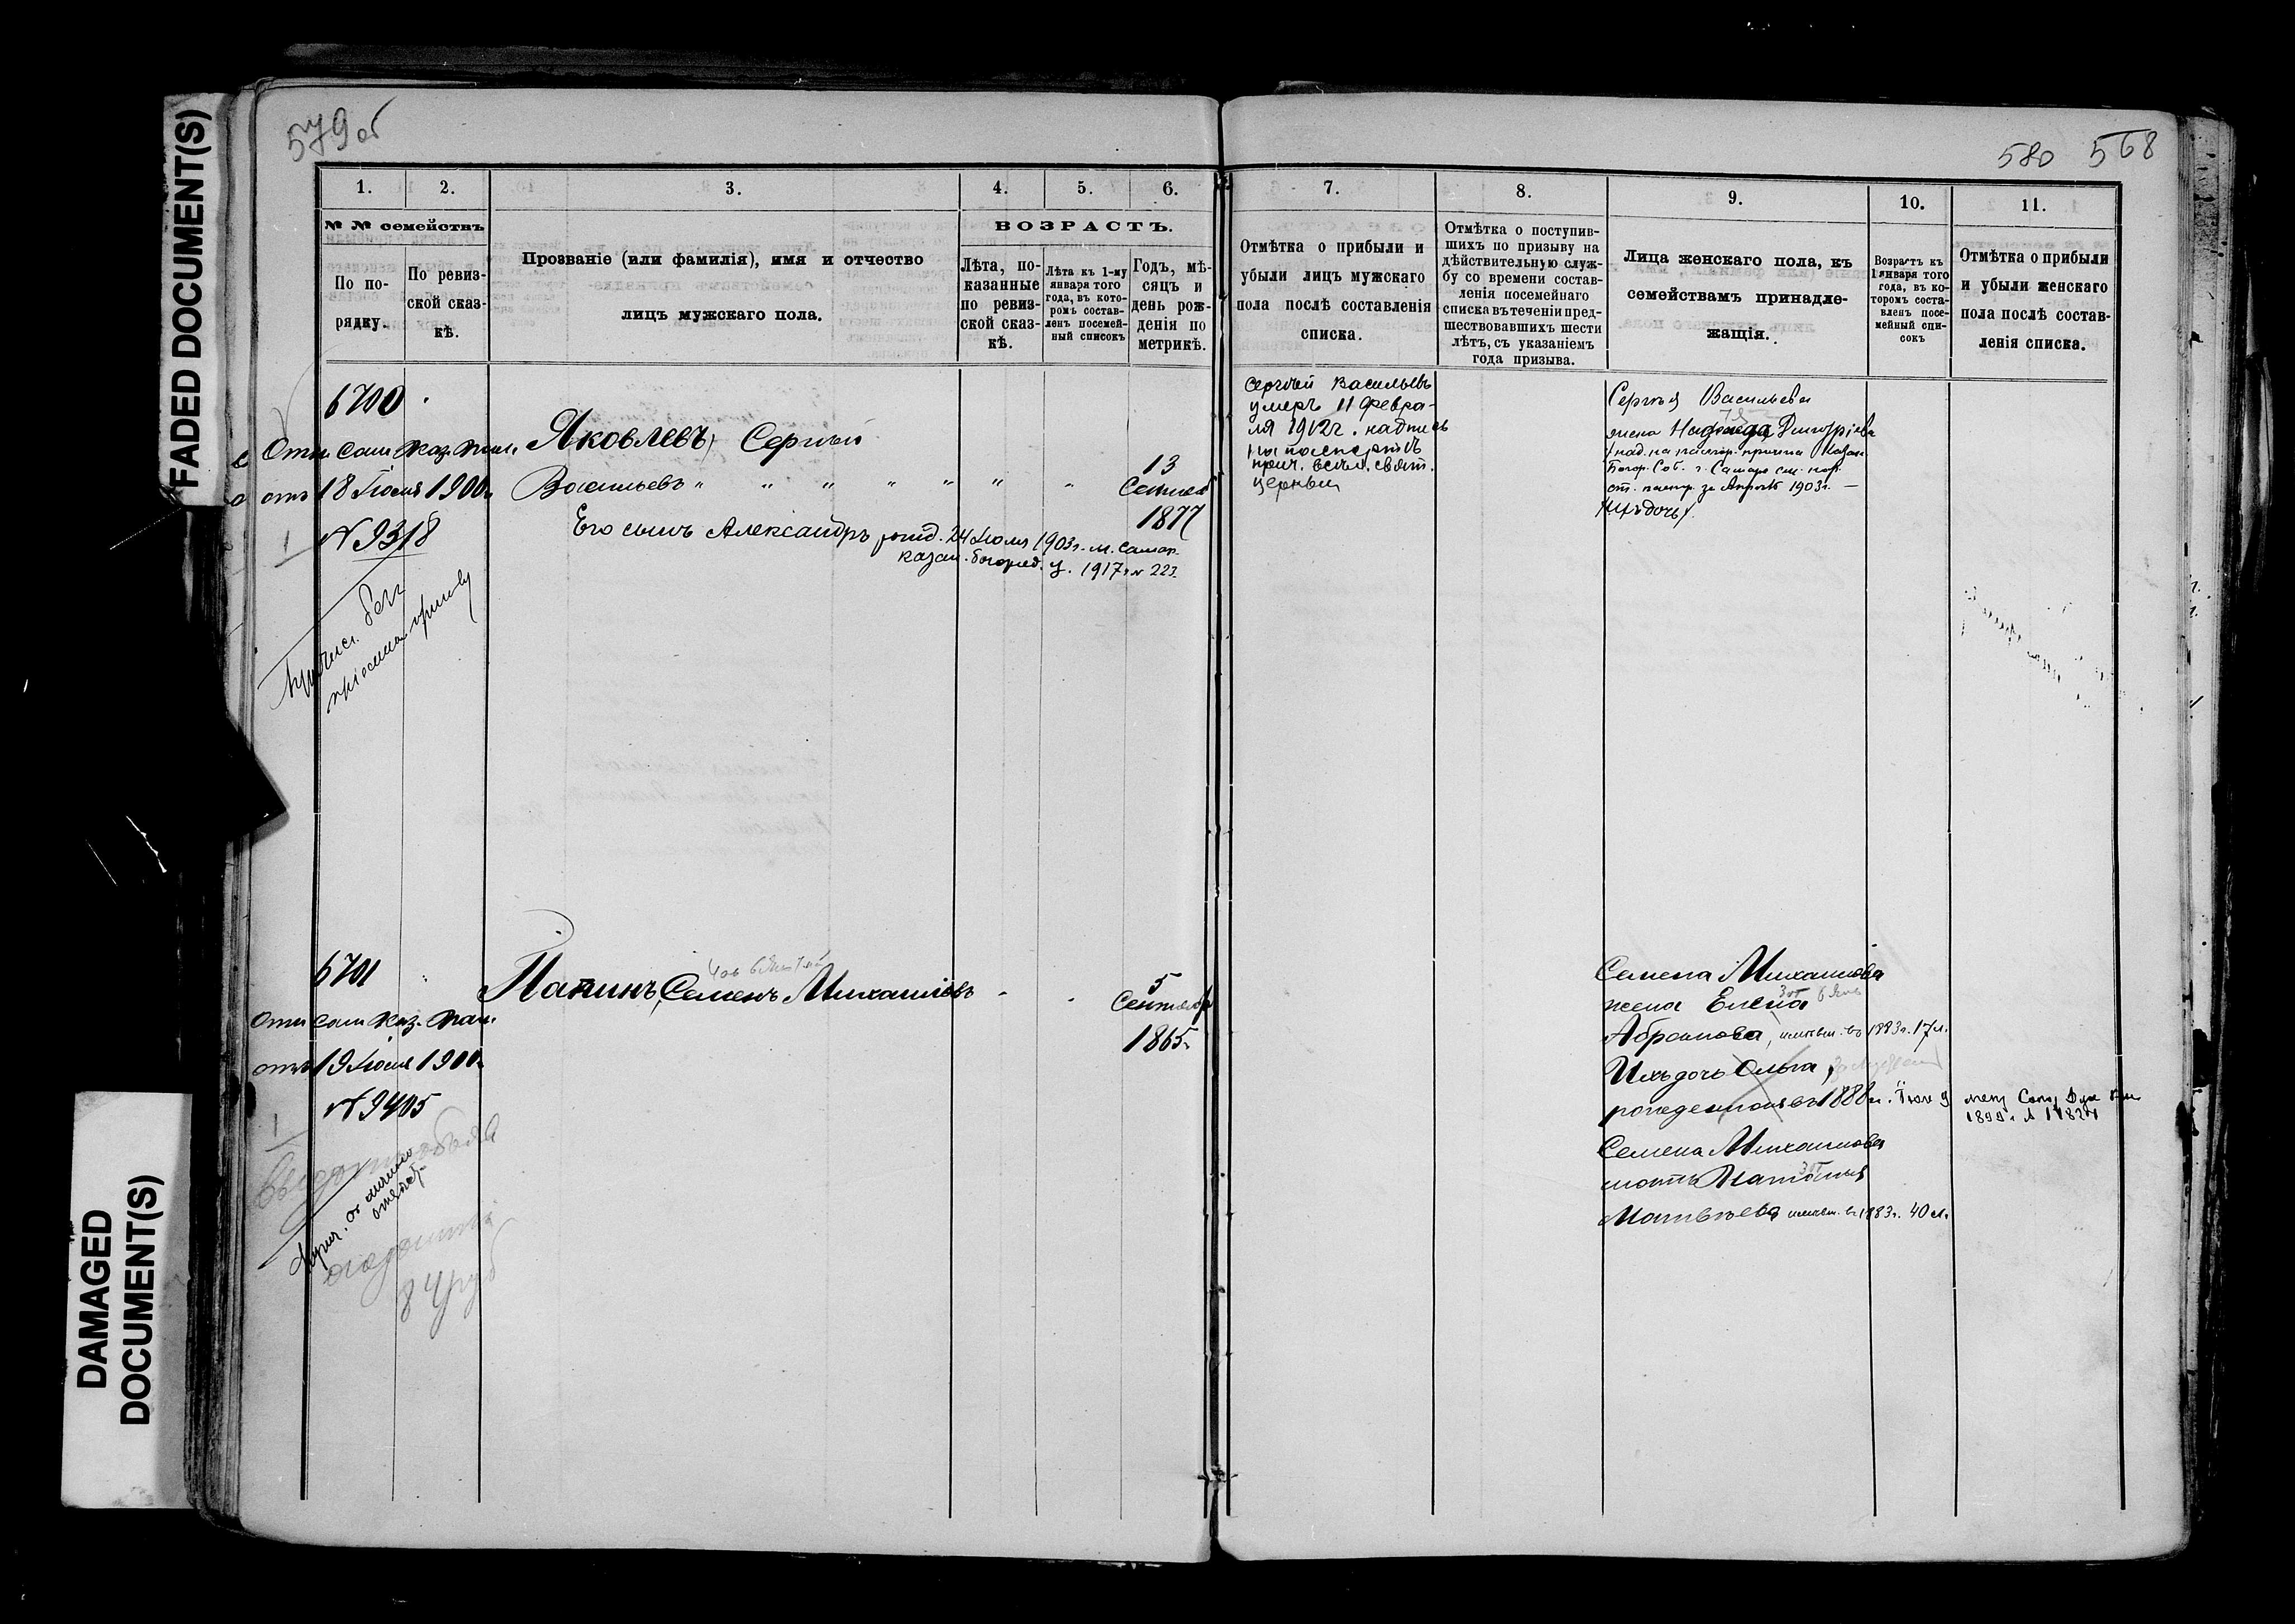 FADED DOCUMENT(S)
DAMAGED
DOCUMENT(S)
579 об
1.
2.
3.
4.
5.
6.
№ № семействъ
По по-
рядку.
По ревиз-
ской сказ-
кѣ.
Прозваніе (или фамилія), имя и отчество
лицъ мужскаго пола.
ВОЗРАСТЪ.
Лѣта, по-
казанные
по ревиз-
ской сказ-
кѣ.
Лѣта къ 1-му
января того
года, въ кото-
ромъ состав-
ленъ посемей-
ный списокъ
Годъ, мѣ-
сяцъ и
день рож-
денія по
метрикѣ.
6700
Отн. Сам. Каз. Пал.
отъ 18 Іюля 1900 г.
N 9318
Яковлевъ, Сергѣй
Васильевъ " " " " " " "
13
Сентяб
1877
Его сынъ Александръ рожд. 24 Іюля 1903 г. м. Самар.
казан. богород. ц. 1917 г. № 223
Причис. безъ
6701
Отн. Сам. Каз. Пал.
отъ 19 Іюля 1900 г.
N 9405
Папинъ, Семенъ Михаиловъ - -
5
Сентябр
1865 г.
84 руб
580 568
7.
8.
9.
10.
11.
Отмѣтка о прибыли и
убыли лицъ мужскаго
пола послѣ составленія
списка.
Отмѣтка о поступив-
шихъ по призыву на
дѣйствительную служ-
бу со времени состав-
ленія посемейнаго
списка въ теченіи пред-
шествовавшихъ шести
лѣтъ, съ указаніемъ
года призыва.
Лица женскаго пола, къ
семействамъ принадле-
жащія.
Возрастъ къ
1 января того
года, въ ко-
торомъ соста-
вленъ посе-
мейный спи-
сокъ
Отмѣтка о прибыли
и убыли женскаго
пола послѣ состав-
ленія списка.
Сергѣй Васильевъ
умеръ 11 Февра-
ля 1912 г. надпись
на паспортѣ
прич. всѣхъ свят.
церкви
Сергѣя Васильева
жена Надежда Дмитріева
/над. на паспор. причта Казан.
Богор. Соб. г. Самары см. кор.
от. паспр. за Апрѣль 1903 г. —
/Ихъ дочь/.
Семена Михаилова
жена Елена
Абрамова, имѣвш. въ 1883 г. 17 л.
Ихъ дочь Ольга,
рожденная въ 1888 г. Іюля 9
1899 г. №
Семена Михаилова
мать
Матвѣева имѣвш. въ 1883 г. 40 л.